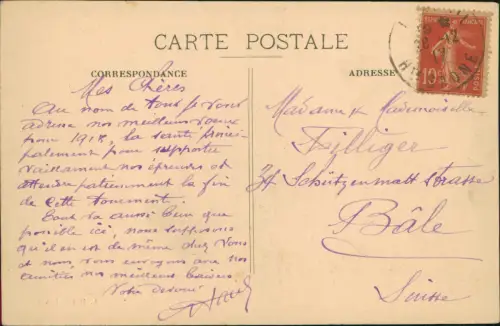 CARTE POSTALE
CORRESPONDANCE
ADRESSE
10
Mes Chères
Au nom de tous je vous
adresse nos meilleurs voeux
pour 1918, la santé princi-
palement pour supporter
vaillamment nos épreuves et
attendre patiemment la fin
de cette tourmente.
Tout va aussi bien que
possible ici, nous supposons
qu'il en est de même chez vous
et nous vous envoyons avec nos
amitiés nos meilleurs baisers
Votre dévoué
Madame & Mademoiselle
Filliger
Schützenmatt Strasse
Bâle
Suisse